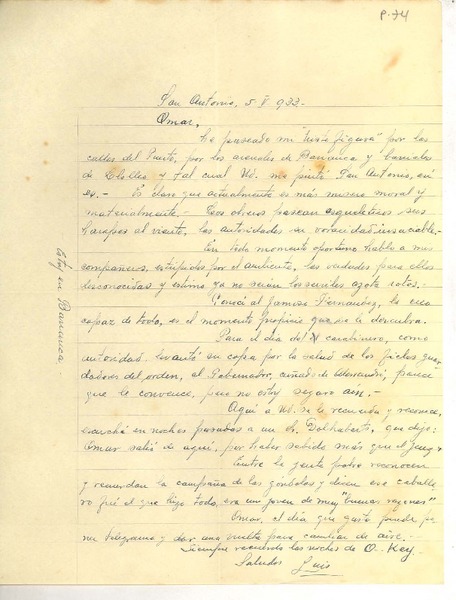 P-74
San Antonio, 5 V 933.-
Omar,
He paseado mi "triste figura" por las
calles del Puerto, por los arenales de Barranca y barriales
de Llolleo y tal cual Ud. me pintó San Antonio, así
es.- Es claro que actualmente es más misero moral y
materialmente.- Los obreros pasean esqueletos i sus
harapos al viento, las autoridades su voracidad insaciable.
En todo momento oportuno hablo a mis
compañeros, estúpidos por el ambiente, las verdades para ellos
desconocidas y estimo ya no serán los serviles
Conocí al famoso Fernandez, lo creo
capaz de todo, es el momento propicio que se le descubra.
Para el día del carabinero, como
autoridad levantó su copa por la salud de los fieles guar
dadores del orden, al Gobernador, cuñado de Alessandri, parece
que le convence, pero no estoy seguro aún.-
Aquí a Ud. se le recuerda y
escuché en noches pasadas a un Sr. que dijo:
Omar salió de aquí, por haber sabido más que el
Entre la gente pobre reconocen
y recuerdan la campaña de las góndolas y dicen ese caballe
ro fué el que hizo todo, era un joven de muy "buenas razones"
Omar, el día que guste puede po
ner telegrama y dar una vuelta para cambiar de aire.-
Siempre recuerdo las noches de O. Key.
Saludos Luis
Estoy en Barranca.